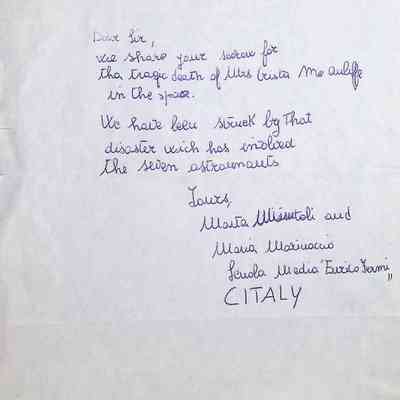 Dear Sir,
we share your sorrow for
tha tragic death of Mrs Crista Mc Auliffe
in the space.
We have been struck by that
disaster wich has involved
the seven astraunauts
Yours,
Marta and
Maria Marinaccio
Scuola Media "Enrico Fermi"
CITALY